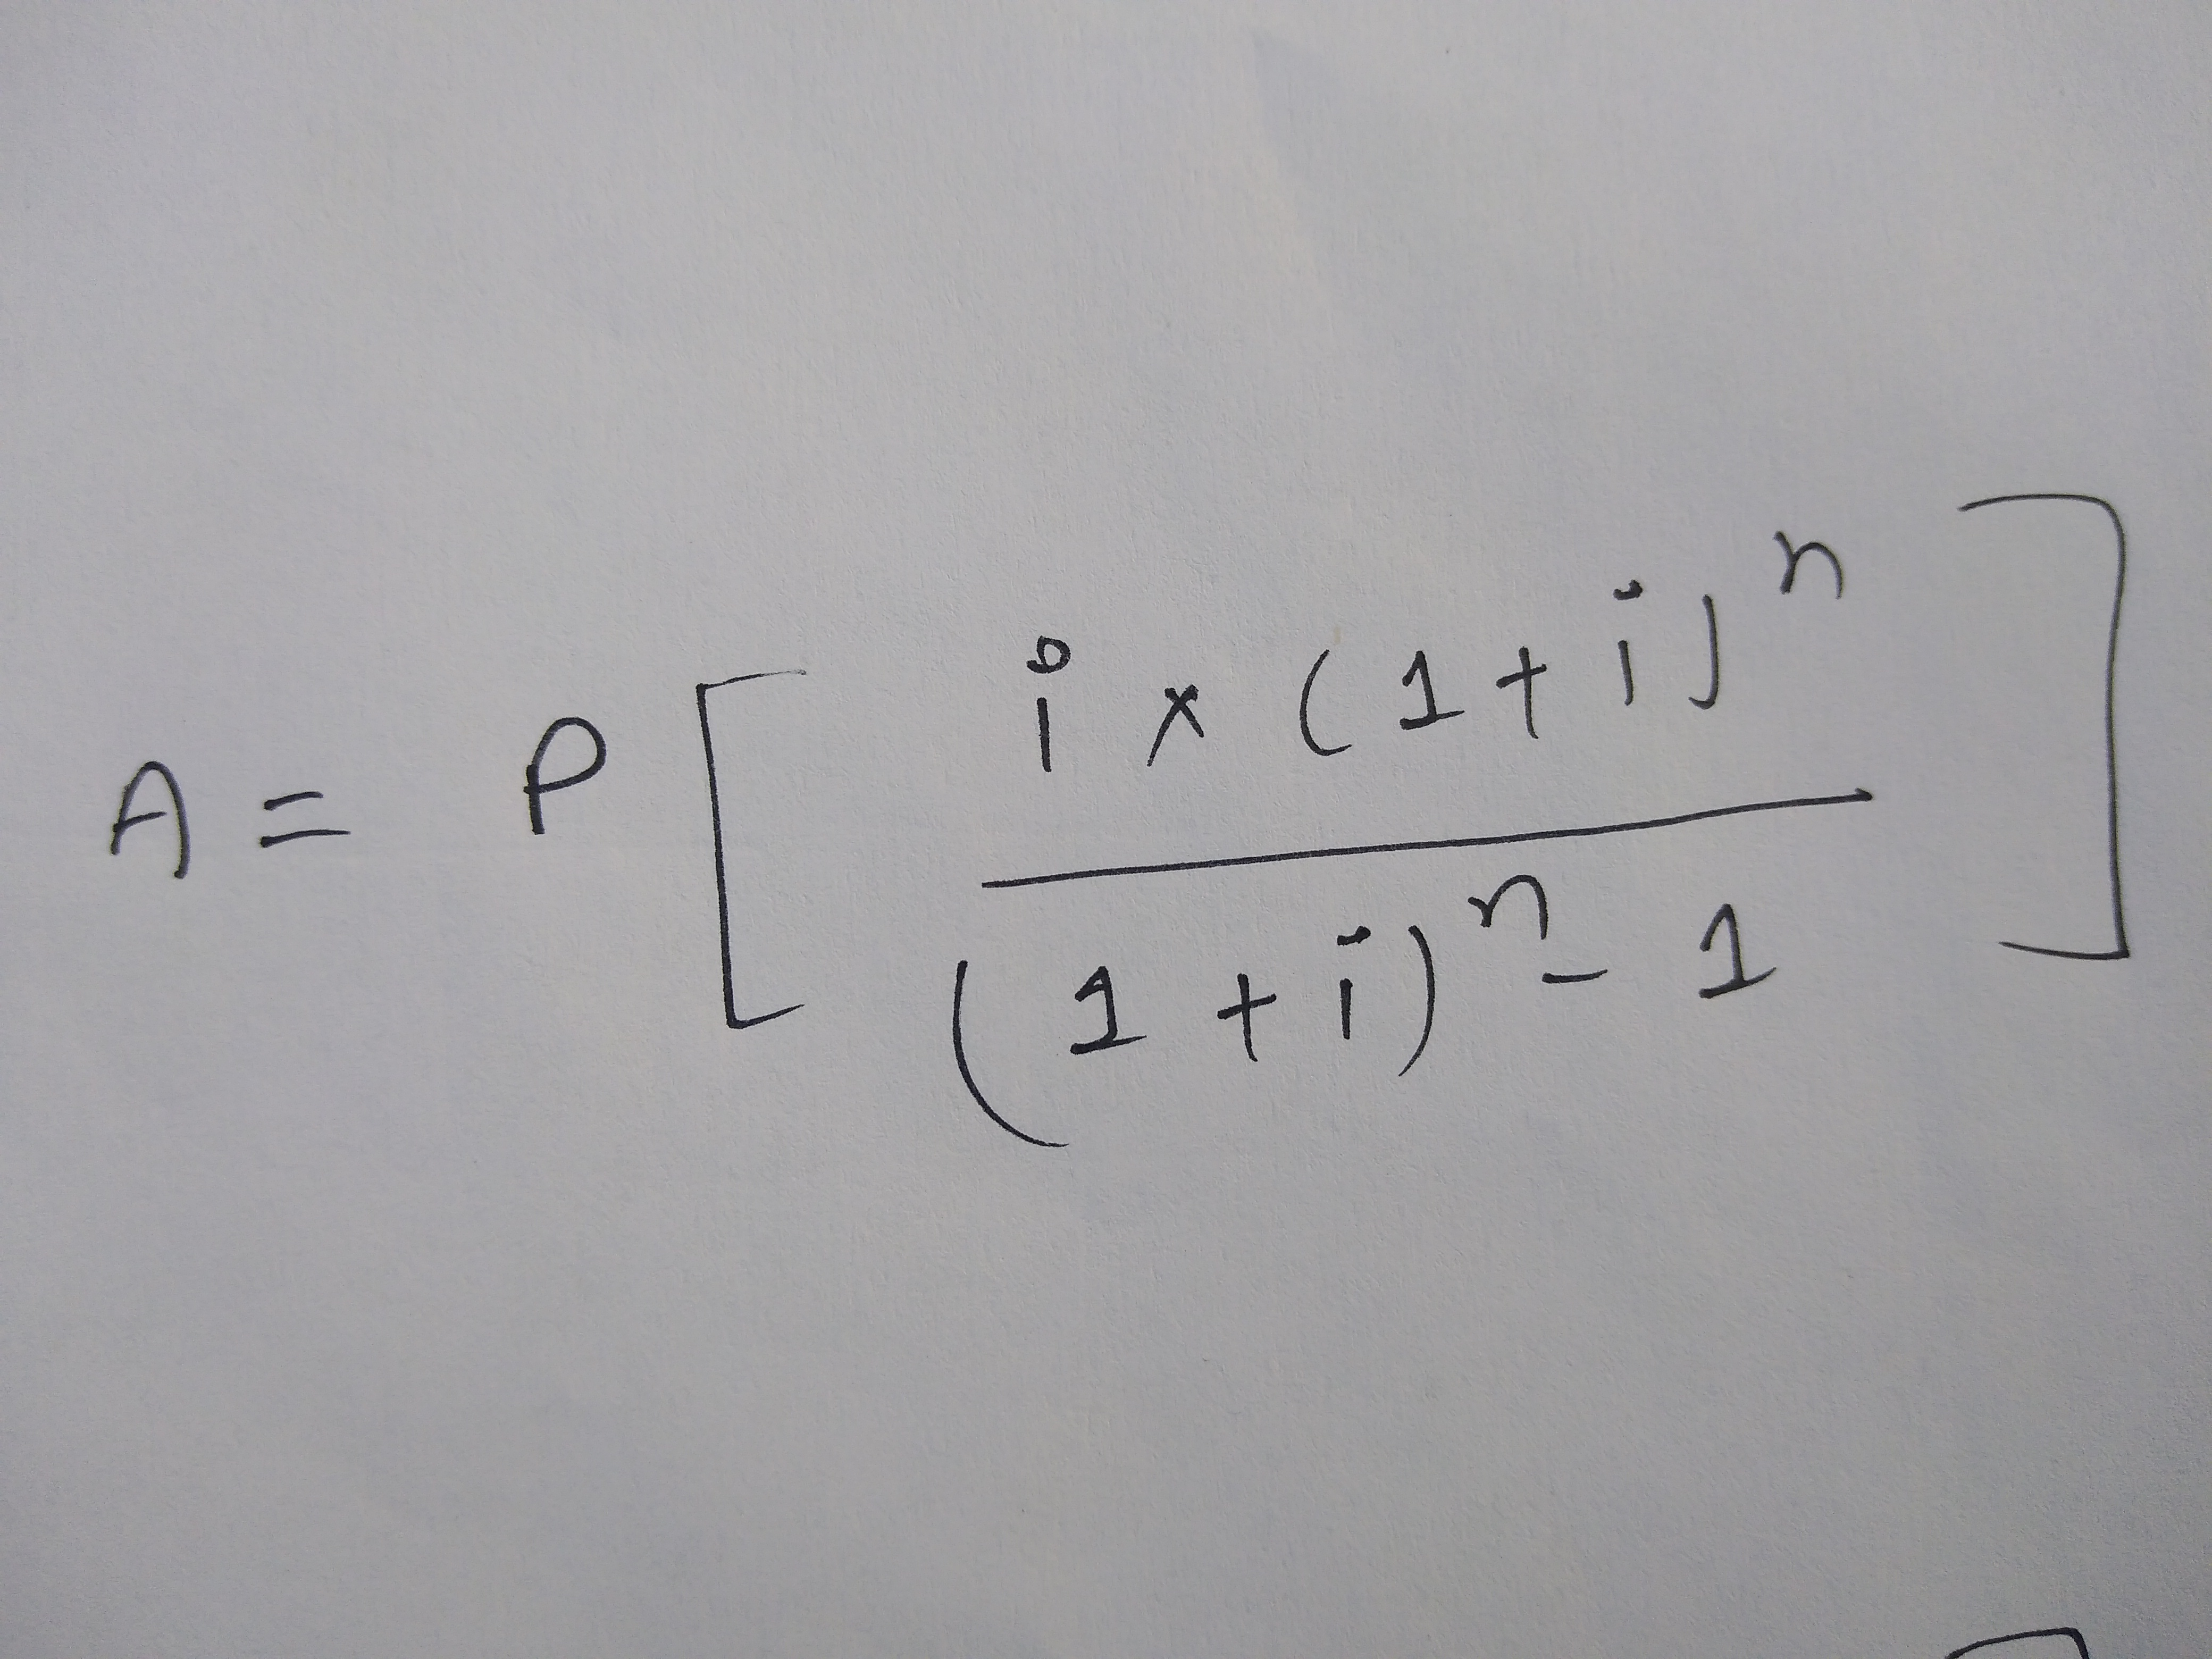 A = P [ i × (1 + i)ⁿ / (1 + i)ⁿ - 1 ]